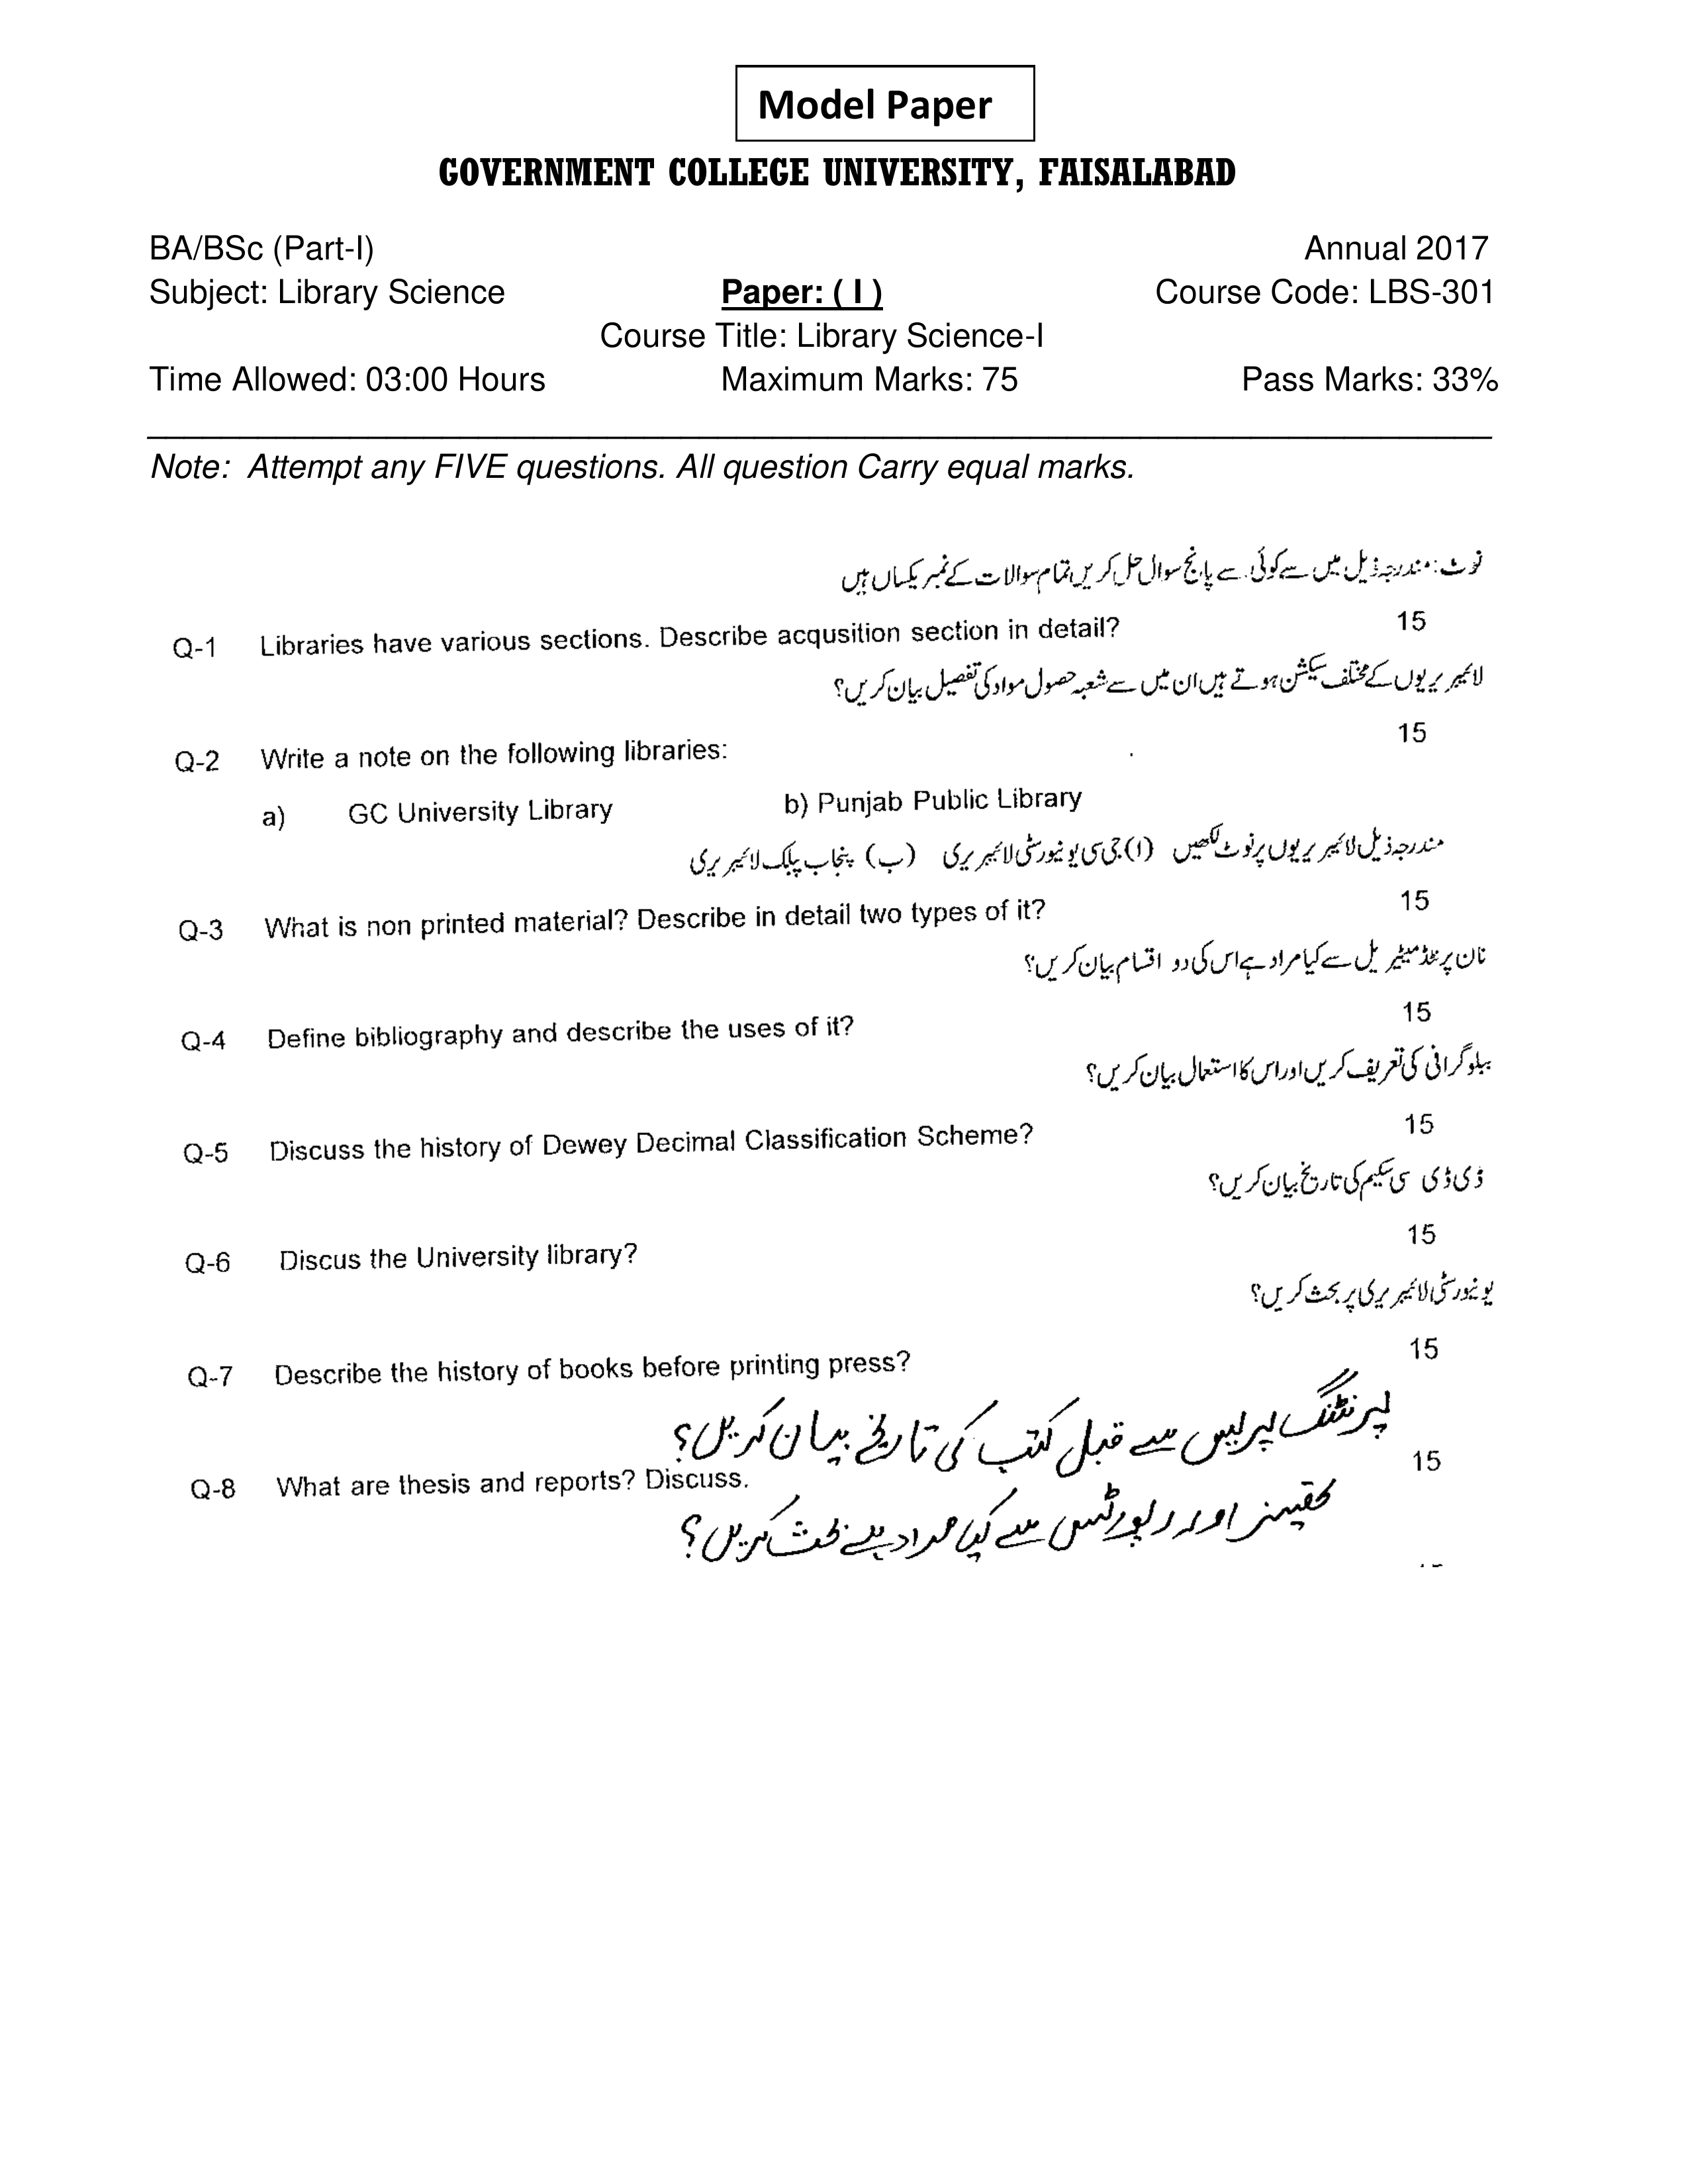 Model Paper
GOVERNMENT COLLEGE UNIVERSITY, FAISALABAD
BA/BSc (Part-I) Annual 2017
Subject: Library Science Paper: ( I ) Course Code: LBS-301
Course Title: Library Science-I
Time Allowed: 03:00 Hours Maximum Marks: 75 Pass Marks: 33%
Note: Attempt any FIVE questions. All question Carry equal marks.
نوٹ: مندرجہ ذیل میں سے کوئی سے پانچ سوال حل کریں تمام سوالات کے نمبر یکساں ہیں
Q-1 Libraries have various sections. Describe acqusition section in detail? 15
لائبریریوں کے مختلف سیکشن ہوتے ہیں ان میں سے شعبہ حصول مواد کی تفصیل بیان کریں؟
Q-2 Write a note on the following libraries: 15
a) GC University Library b) Punjab Public Library
مندرجہ ذیل لائبریریوں پر نوٹ لکھیں (ا) جی سی یونیورسٹی لائبریری (ب) پنجاب پبلک لائبریری
Q-3 What is non printed material? Describe in detail two types of it? 15
نان پرنٹڈ میٹیریل سے کیا مراد ہے اس کی دو اقسام بیان کریں؟
Q-4 Define bibliography and describe the uses of it? 15
ببلوگرافی کی تعریف کریں اور اس کا استعمال بیان کریں؟
Q-5 Discuss the history of Dewey Decimal Classification Scheme? 15
ڈی ڈی سی سکیم کی تاریخ بیان کریں؟
Q-6 Discus the University library? 15
یونیورسٹی لائبریری پر بحث کریں؟
Q-7 Describe the history of books before printing press? 15
پرنٹنگ پریس سے قبل کتب کی تاریخ بیان کریں؟
Q-8 What are thesis and reports? Discuss. 15
اور رپورٹس سے کیا مراد ہے بحث کریں؟